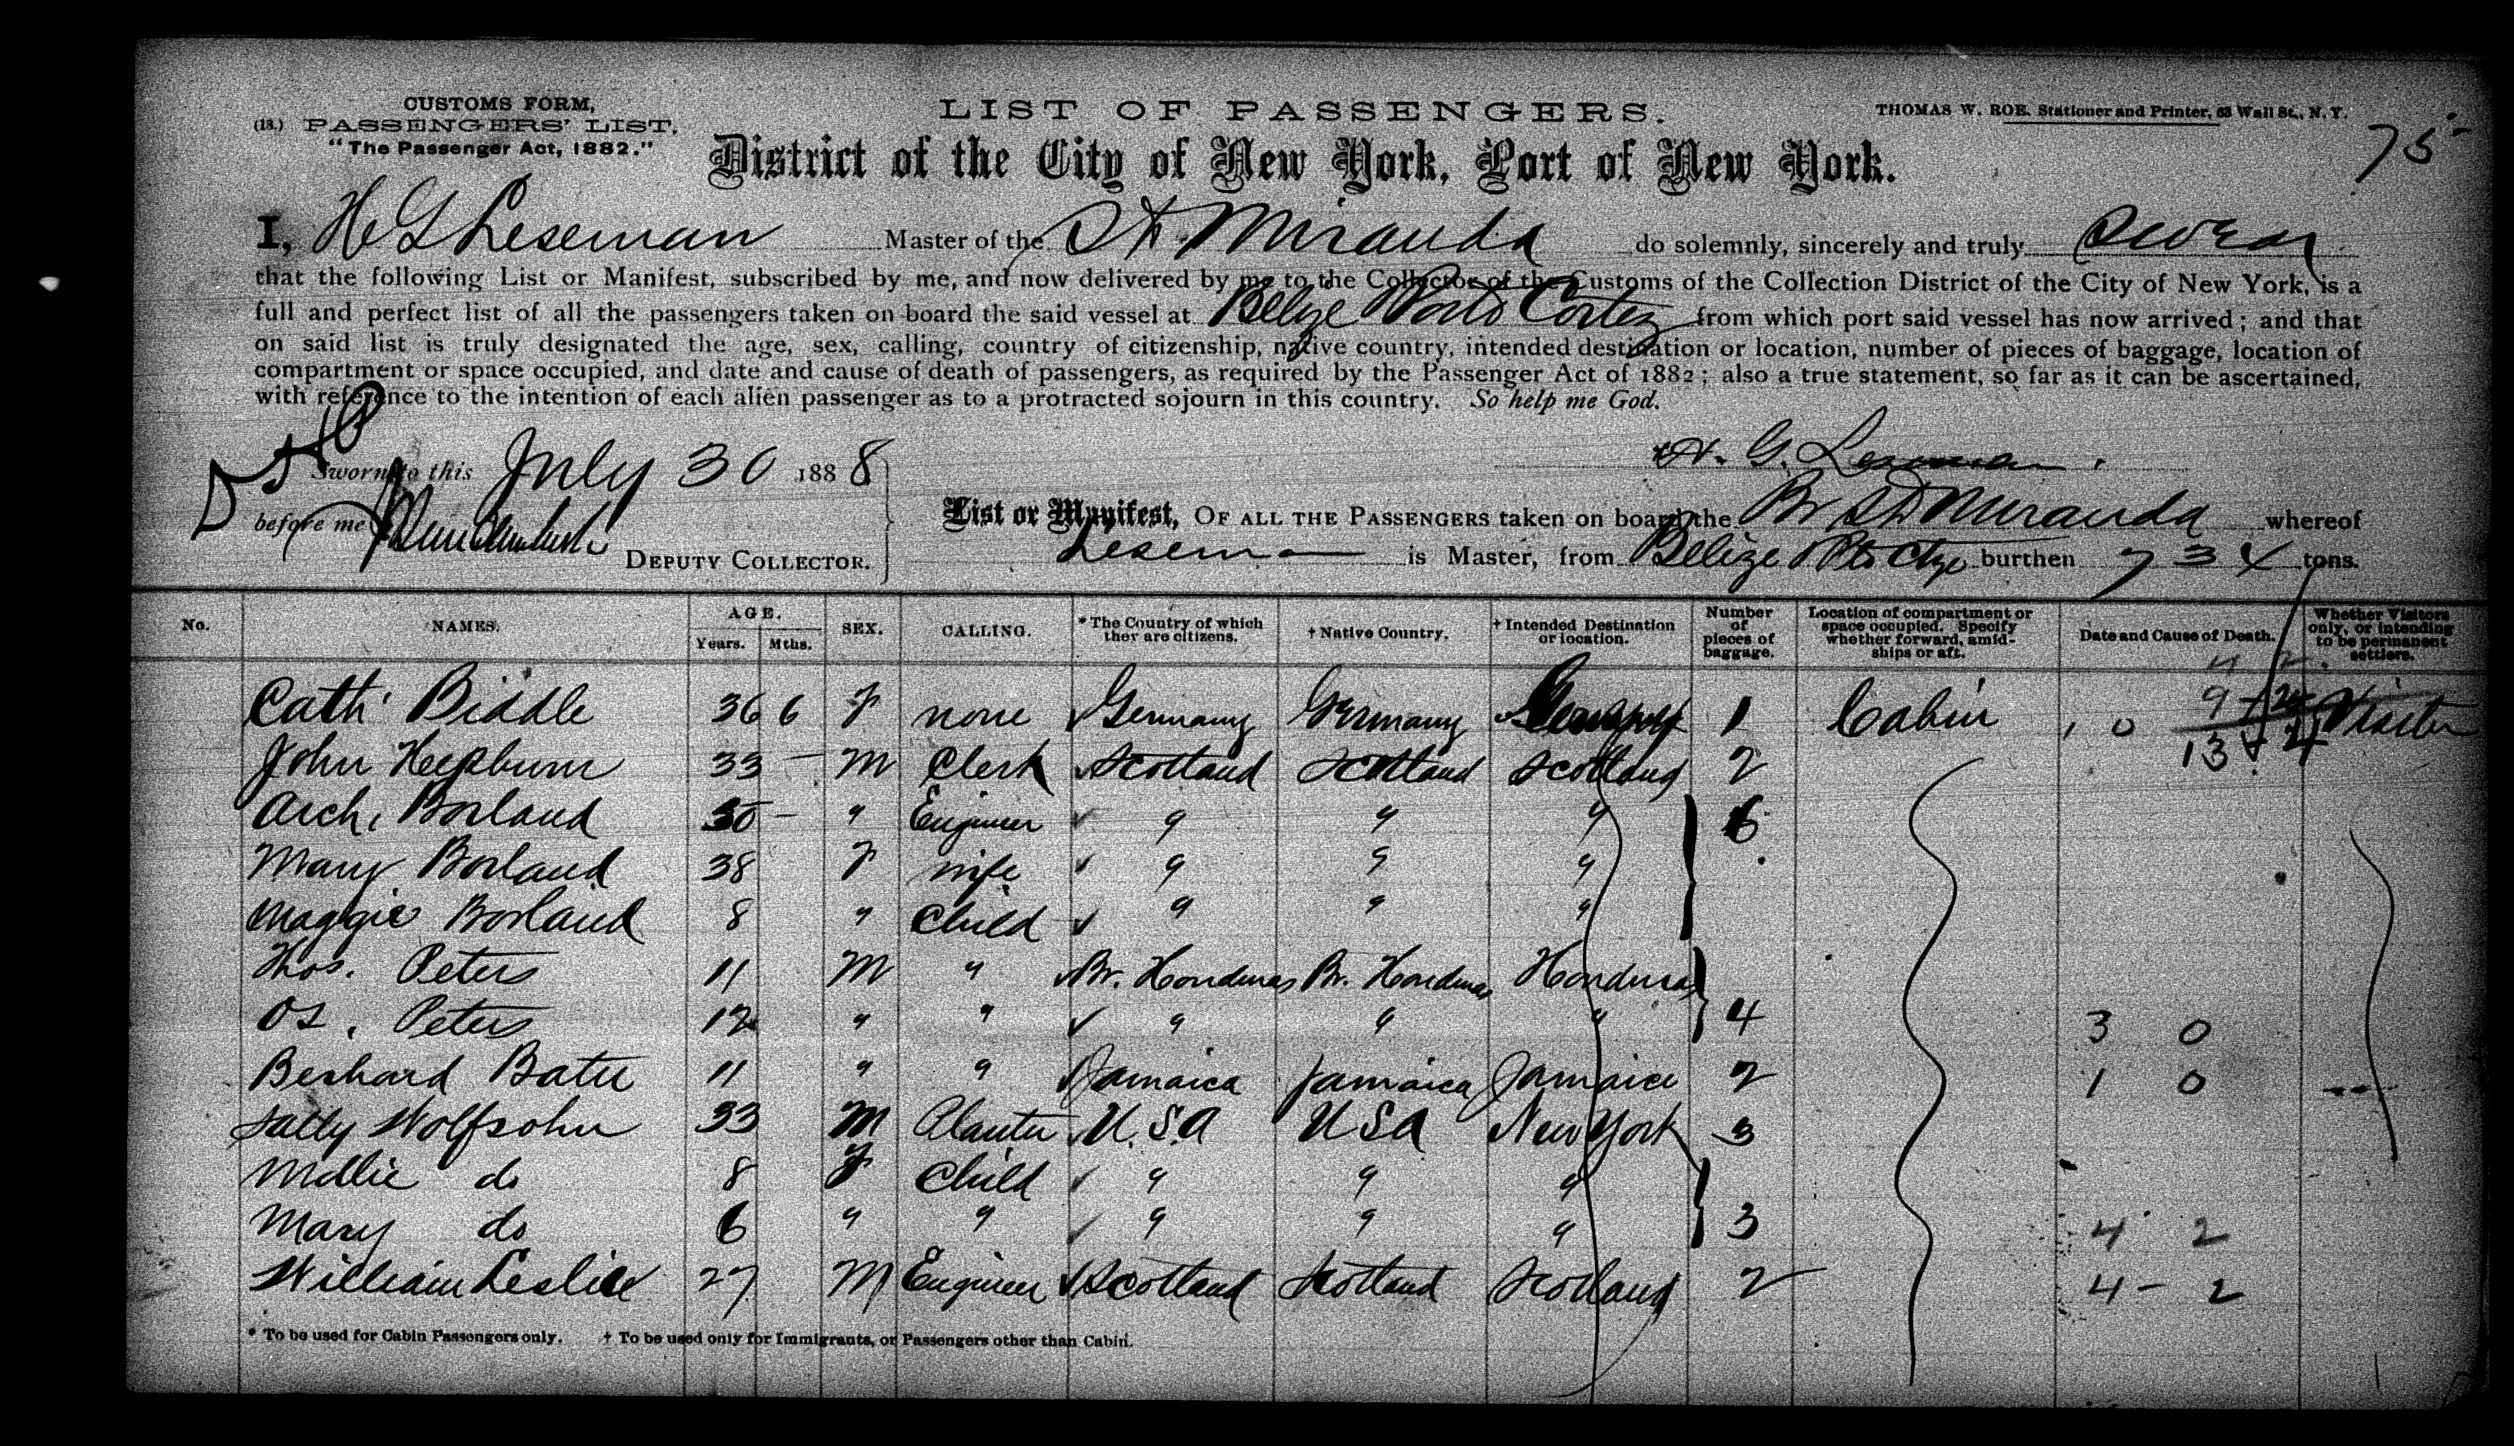 CUSTOMS FORM,
(13.) PASSENGERS' LIST.
"The Passenger Act, 1882."
LIST OF PASSENGERS.
THOMAS W. ROE. Stationer and Printer, 63 Wall St., N. Y.
75
District of the City of New York, Port of New York.
I, H G Leseman Master of the Miranda do solemnly, sincerely and truly swear
that the following List or Manifest, subscribed by me, and now delivered by me to the Collector of the Customs of the Collection District of the City of New York, is a
full and perfect list of all the passengers taken on board the said vessel at Belize Porto Cortez from which port said vessel has now arrived; and that
on said list is truly designated the age, sex, calling, country of citizenship, native country, intended destination or location, number of pieces of baggage, location of
compartment or space occupied, and date and cause of death of passengers, as required by the Passenger Act of 1882; also a true statement, so far as it can be ascertained,
with reference to the intention of each alien passenger as to a protracted sojourn in this country. So help me God.
H. G. Leseman
Sworn to this July 30 1888
before me
DEPUTY COLLECTOR.
List or Manifest, OF ALL THE PASSENGERS taken on board the Br Miranda whereof
Leseman is Master, from Belize Pto Ctz burthen 734 tons.
No. NAMES. AGE. Years. Mths. SEX. CALLING. * The Country of which ther are citizens. † Native Country. † Intended Destination or location. Number of pieces of baggage. Location of compartment or space occupied. Specify whether forward, amidships or aft. Date and Cause of Death. Whether Visitors only, or intending to be permanent settlers.
Cath Biddle 36 6 F none Germany Germany 1 Cabin 1 0 Visitor
John Hepburn 33 – M Clerk Scotland Scotland Scotland 2
Arch, Borland – " Engineer " " " 6
Mary Borland 38 F wife " " "
Maggie Borland 8 " Child " " "
Thos. Peters 11 M " Br. Honduras Br. Honduras Honduras
Os. Peters 12 " " " " " 4 3 0
Berhard 11 " " Jamaica Jamaica Jamaica 2 1 0
Sally Wolfsohn 33 M U.S.A USA New York 3
Mollie do 8 F Child " " "
Mary do 6 " " " " " 3 4 2
William Leslie 27 M Engineer Scotland Scotland Scotland 2 4 – 2
* To be used for Cabin Passengers only. † To be used only for Immigrants, or Passengers other than Cabin.